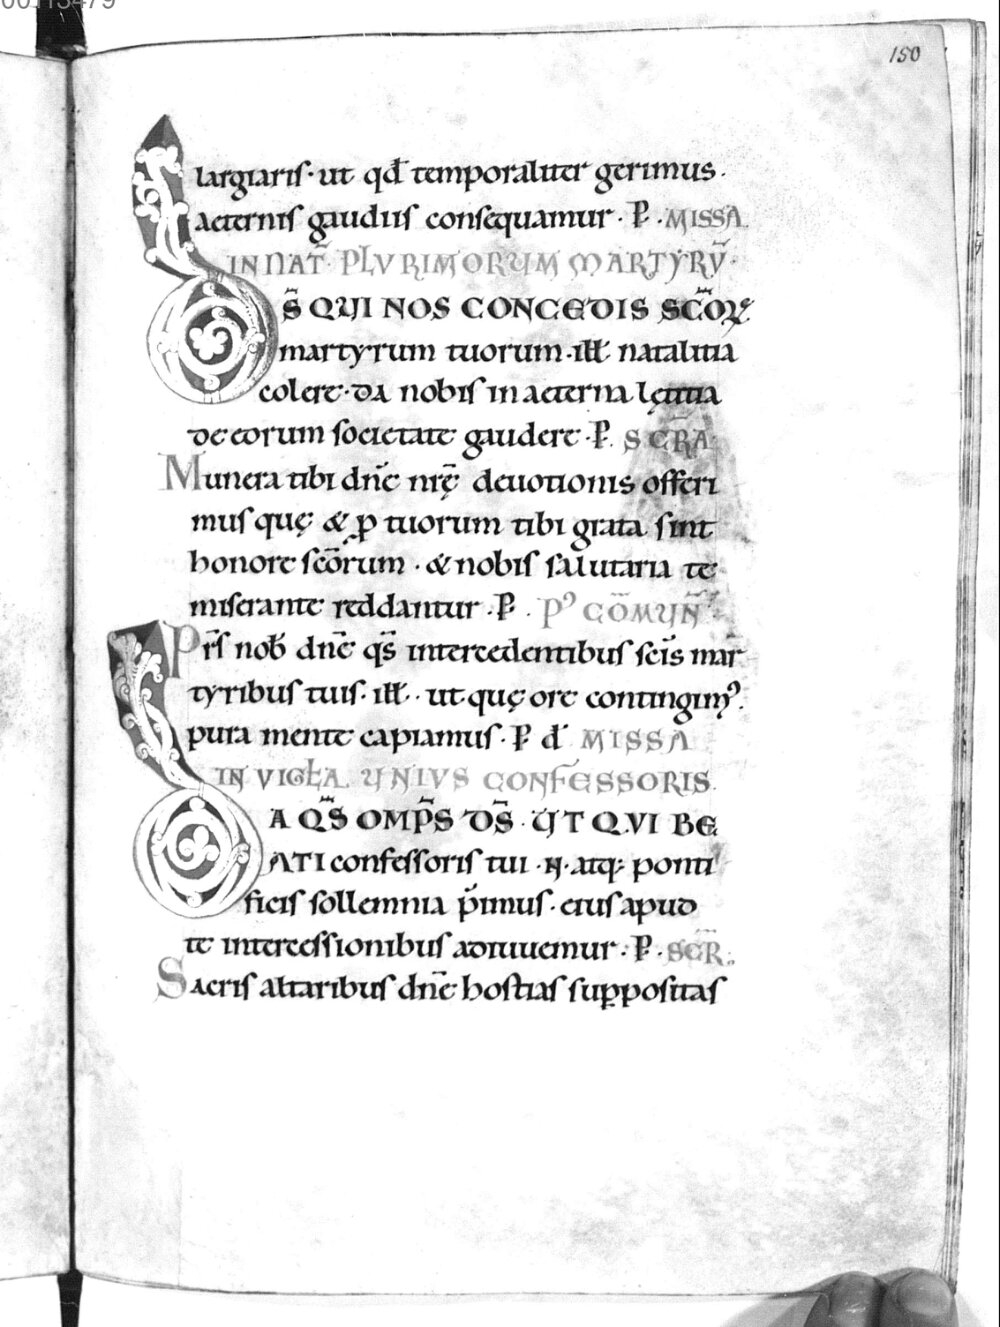 00113479
150
largiaris· ut qđ temporaliter gerimus.
aeternis gaudiis consequamur· P̄. MISSA
IN NAT̄. PLVRIMORUM MARTYRŪ.
D̄S QUI NOS CONCEDIS SC̄OR̄
martyrum tuorum·ill̄ natalitia
colere·da nobis in aeterna lętitia
de eorum societate gaudere·P̄. SECR̄A
Munera tibi dn̄e nr̄ę deuotionis offeri
mus quę & ꝓ tuorum tibi grata sint
honore sc̄orum · & nobis salutaria te
miserante reddantur·P̄. Pꝰ COM̄UN̄
Pr̄s nob̄ dn̄e qs̄ intercedentibus sc̄is mar
tyribus tuis·ill̄· ut quę ore contingimꝰ.
pura mente capiamus·P̄ d̄ MISSA
IN VIGĿA UNIVS CONFESSORIS.
DA QS̄ OMP̄S D̄S· UT QVI BE
ATI confessoris tui ·N· atq; ponti
ficis sollemnia p̄imus· eius apud
te intercessionibus adiuuemur·P̄·SECR̄.
Sacris altaribus dn̄e hostias suppositas